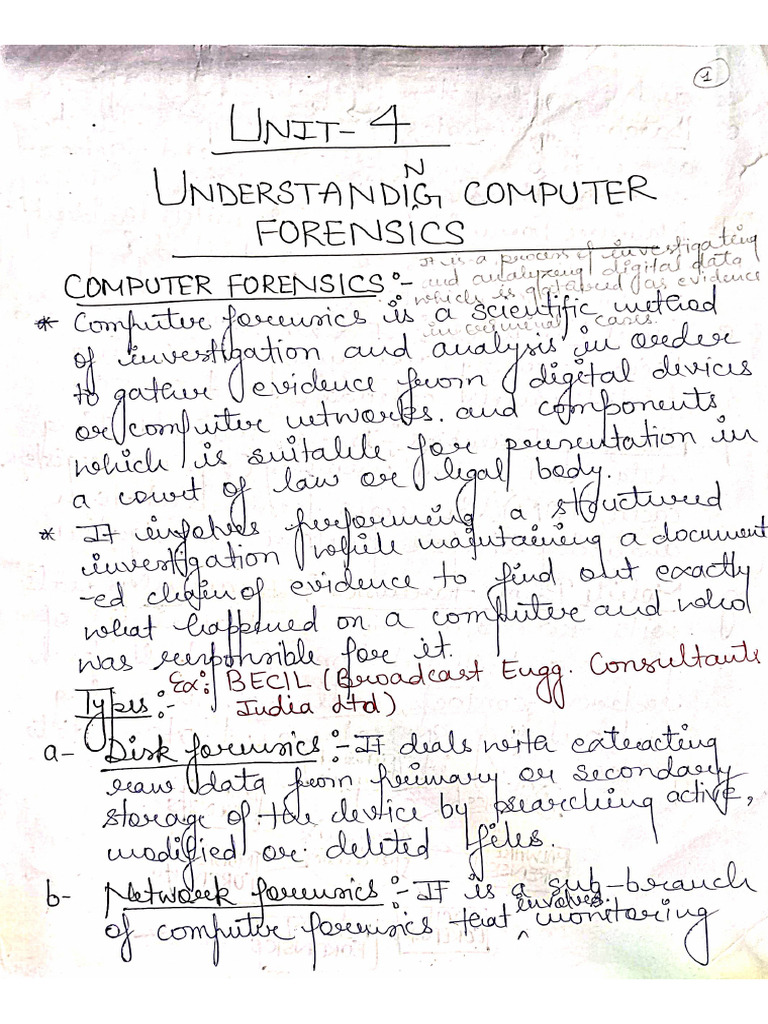 1
UNIT-4
UNDERSTANDING COMPUTER
FORENSICS
COMPUTER FORENSICS:-
It is a process of investigating
and analyzing digital data
which is gathered as evidence
in criminal cases.
* Computer forensics is a scientific method
of investigation and analysis in order
to gather evidence from digital devices
or computer networks. and components
which is suitable for presentation in
a court of law or legal body.
* It involves performing a structured
investigation while maintaining a document
-ed chain of evidence to find out exactly
what happened on a computer and who
was responsible for it.
Ex: BECIL (Broadcast Engg. Consultants
India Ltd)
Types:-
a- Disk forensics:- It deals with extracting
raw data from primary or secondary
storage of the device by searching active,
modified or deleted files.
b- Network forensics:- It is a sub-branch
of computer forensics that involves monitoring